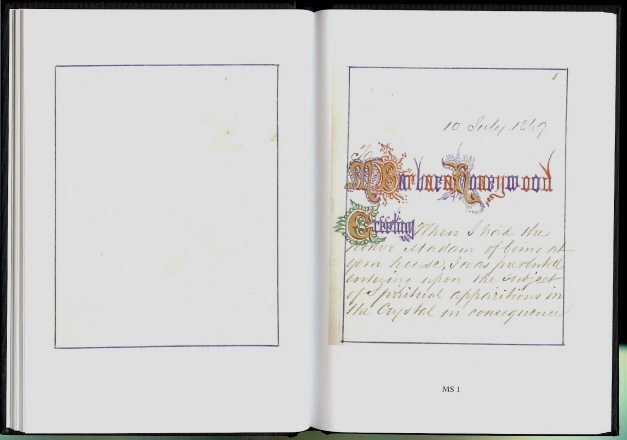 1
10 July 1869
To
Mrs Barbara Honeywood
Greeting When I had the
honor Madam of being at
your house, I was prevented
entering upon the subject
of Spiritual apparitions in
the Crystal in consequence
MS 1